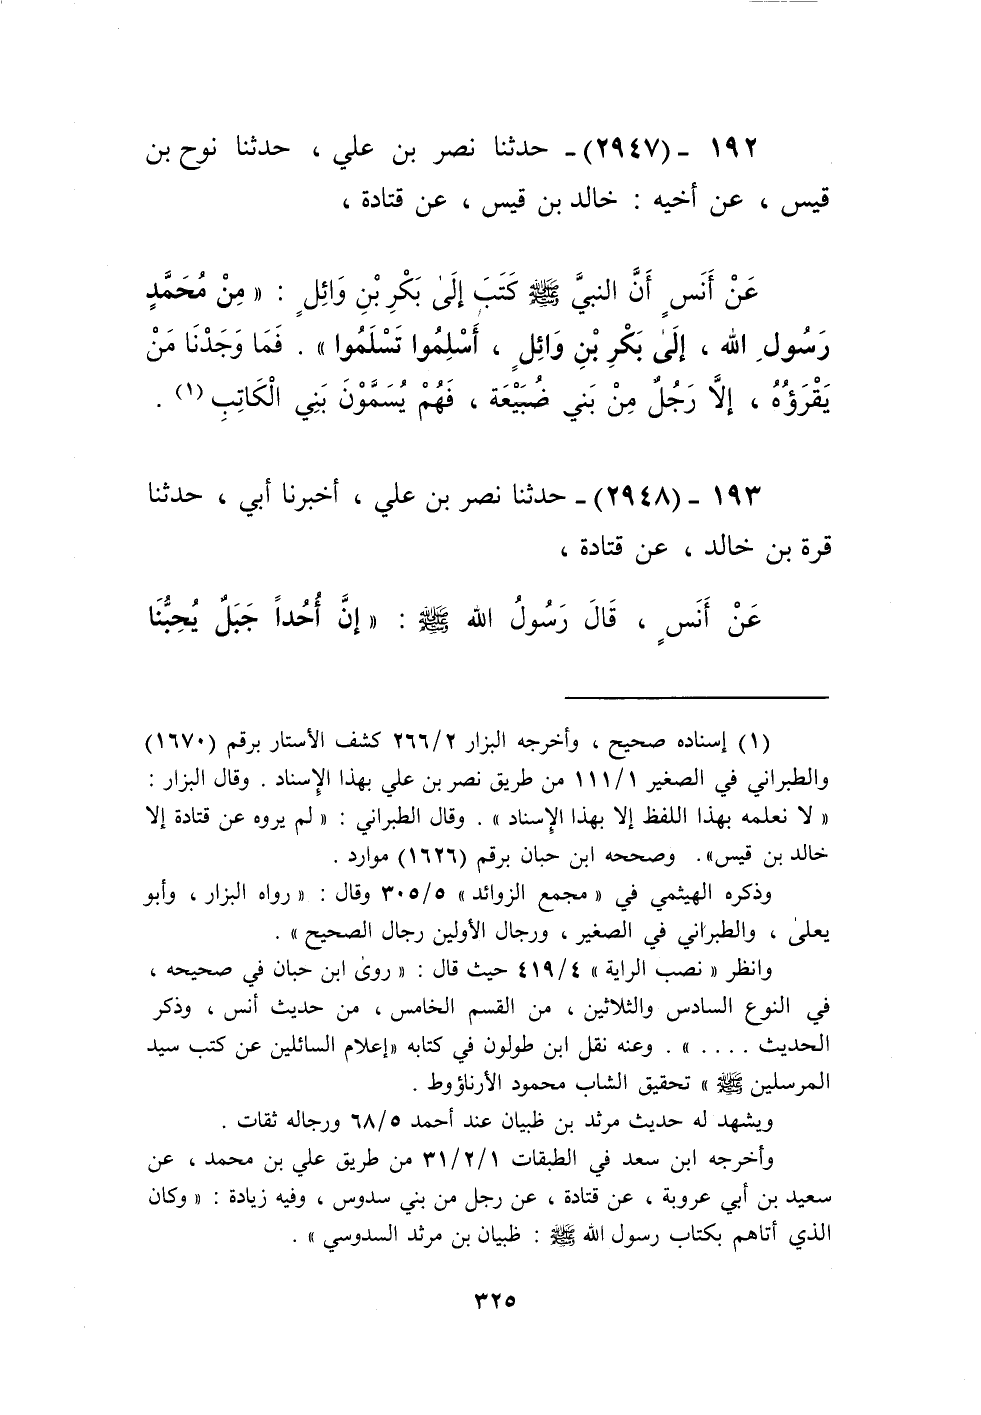 ١٩٢ - (٢٩٤٧) - حدثنا نصر بن علي ، حدثنا نوح بن
قيس ، عن أخيه : خالد بن قيس ، عن قتادة ،
عَنْ أَنَسٍ أَنَّ النبيَّ ﷺ كَتَبَ إلَىٰ بَكْرِ بْنِ وَائِلٍ : « مِنْ مُحَمَّدٍ
رَسُولِ الله ، إلَىٰ بَكْرِ بْنِ وَائِلٍ ، أَسْلِمُوا تَسْلَمُوا » . فَمَا وَجَدْنَا مَنْ
يَقْرَؤُهُ ، إلَّا رَجُلٌ مِنْ بَني ضُبَيْعَة ، فَهُمْ يُسَمَّوْنَ بَنِي الْكَاتِبِ (١) .
١٩٣ - (٢٩٤٨) - حدثنا نصر بن علي ، أخبرنا أبي ، حدثنا
قرة بن خالد ، عن قتادة ،
عَنْ أَنَسٍ ، قَالَ رَسُولُ الله ﷺ : « إنَّ أُحُداً جَبَلٌ يُحِبُّنَا
(١) إسناده صحيح ، وأخرجه البزار ٢٦٦/٢ كشف الأستار برقم (١٦٧٠)
والطبراني في الصغير ١١١/١ من طريق نصر بن علي بهذا الإِسناد . وقال البزار :
« لا نعلمه بهذا اللفظ إلا بهذا الإِسناد » . وقال الطبراني : « لم يروه عن قتادة إلا
خالد بن قيس». وصححه ابن حبان برقم (١٦٢٦) موارد .
وذكره الهيثمي في « مجمع الزوائد » ٣٠٥/٥ وقال : « رواه البزار ، وأبو
يعلىٰ ، والطبراني في الصغير ، ورجال الأولين رجال الصحيح » .
وانظر « نصب الراية » ٤١٩/٤ حيث قال : « روىٰ ابن حبان في صحيحه ،
في النوع السادس والثلاثين ، من القسم الخامس ، من حديث أنس ، وذكر
الحديث .... » . وعنه نقل ابن طولون في كتابه «إعلام السائلين عن كتب سيد
المرسلين ﷺ » تحقيق الشاب محمود الأرناؤوط .
ويشهد له حديث مرثد بن ظبيان عند أحمد ٦٨/٥ ورجاله ثقات .
وأخرجه ابن سعد في الطبقات ٣١/٢/١ من طريق علي بن محمد ، عن
سعيد بن أبي عروبة ، عن قتادة ، عن رجل من بني سدوس ، وفيه زيادة : « وكان
الذي أتاهم بكتاب رسول الله ﷺ : ظبيان بن مرثد السدوسي » .
٣٢٥